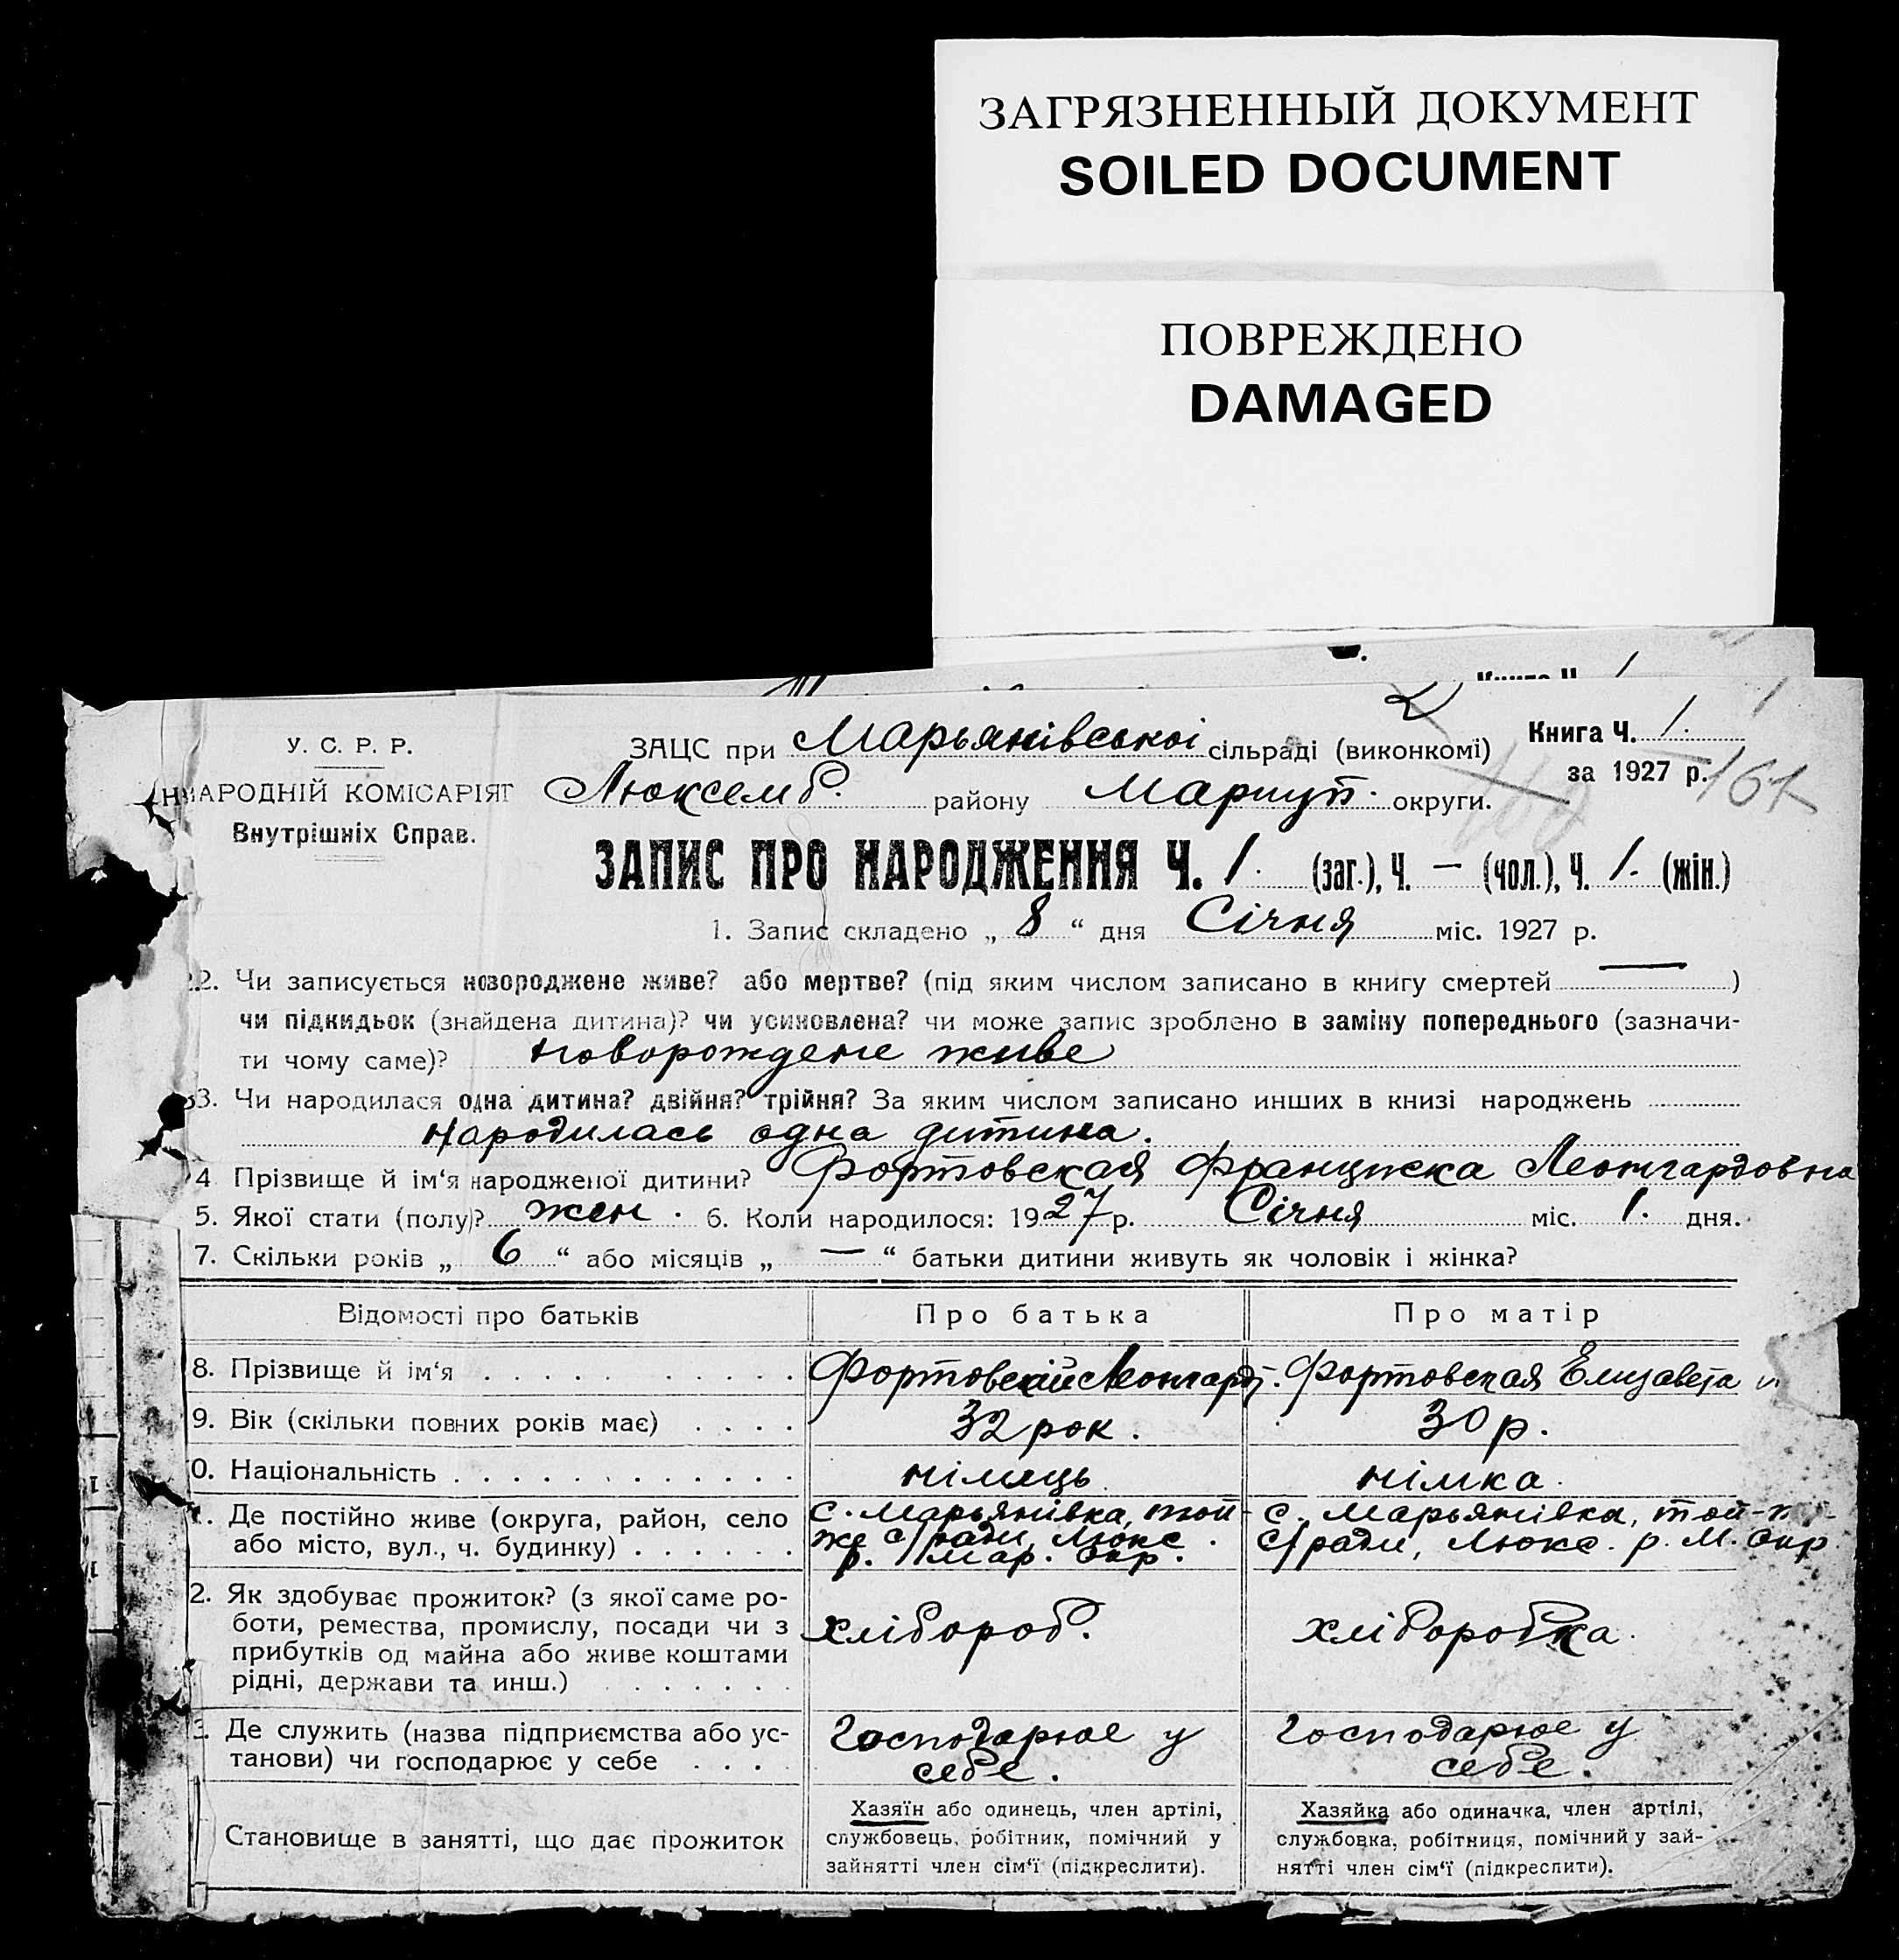 ЗАГРЯЗНЕННЫЙ ДОКУМЕНТ
SOILED DOCUMENT
ПОВРЕЖДЕНО
DAMAGED
Книга Ч. 1
У. С. Р. Р.
НАРОДНІЙ КОМІСАРІЯТ
Внутрішніх Справ.
ЗАЦС при Марьянівської сільраді (виконкомі)
Книга Ч. 1.
за 1927 р.
161
Люксемб. району Мариуп. округи.
ЗАПИС ПРО НАРОДЖЕННЯ Ч. 1. (заг.), Ч. — (чол.), Ч. 1. (жін.)
1. Запис складено „ 8 “ дня Січня міс. 1927 р.
2. Чи записується новороджене живе? або мертве? (під яким числом записано в книгу смертей — )
чи підкидьок (знайдена дитина)? чи усиновлена? чи може запис зроблено в заміну попереднього (зазначи-
ти чому саме)? новорождене живе
3. Чи народилася одна дитина? двійня? трійня? За яким числом записано инших в книзі народжень
народилась одна дитина.
4 Прізвище й ім‘я народженої дитини? Фортовская Франциска Леонгардовна
5. Якої стати (полу)? жен. 6. Коли народилося: 1927 р. Січня міс. 1. дня.
7. Скільки років „ 6 “ або місяців „ — “ батьки дитини живуть як чоловік і жінка?
Відомості про батьків Про батька Про матір
8. Прізвище й ім‘я Фортовскій Леонгард. Фортовская Елизавета
9. Вік (скільки повних років має) 32 рок. 30 р.
0. Національність німець німка.
1. Де постійно живе (округа, район, село
або місто, вул., ч. будинку)
с. Марьянівка, той-
же с/ради, Люкс.
р. Мар. Окр.
с. Марьянівка, той-
с/ради, Люкс. р. М. Окр.
2. Як здобуває прожиток? (з якої саме ро-
боти, ремества, промислу, посади чи з
прибутків од майна або живе коштами
рідні, держави та инш.)
хлібороб.
хліборобка.
3. Де служить (назва підприємства або ус-
танови) чи господарює у себе
Господарює у
себе.
Господарює у
себе.
Становище в занятті, що дає прожиток
Хазяїн або одинець, член артілі,
службовець, робітник, помічний у
зайнятті член сім‘ї (підкреслити).
Хазяйка або одиначка, член артілі,
службовка, робітниця, помічний у зай-
нятті член сім‘ї (підкреслити).